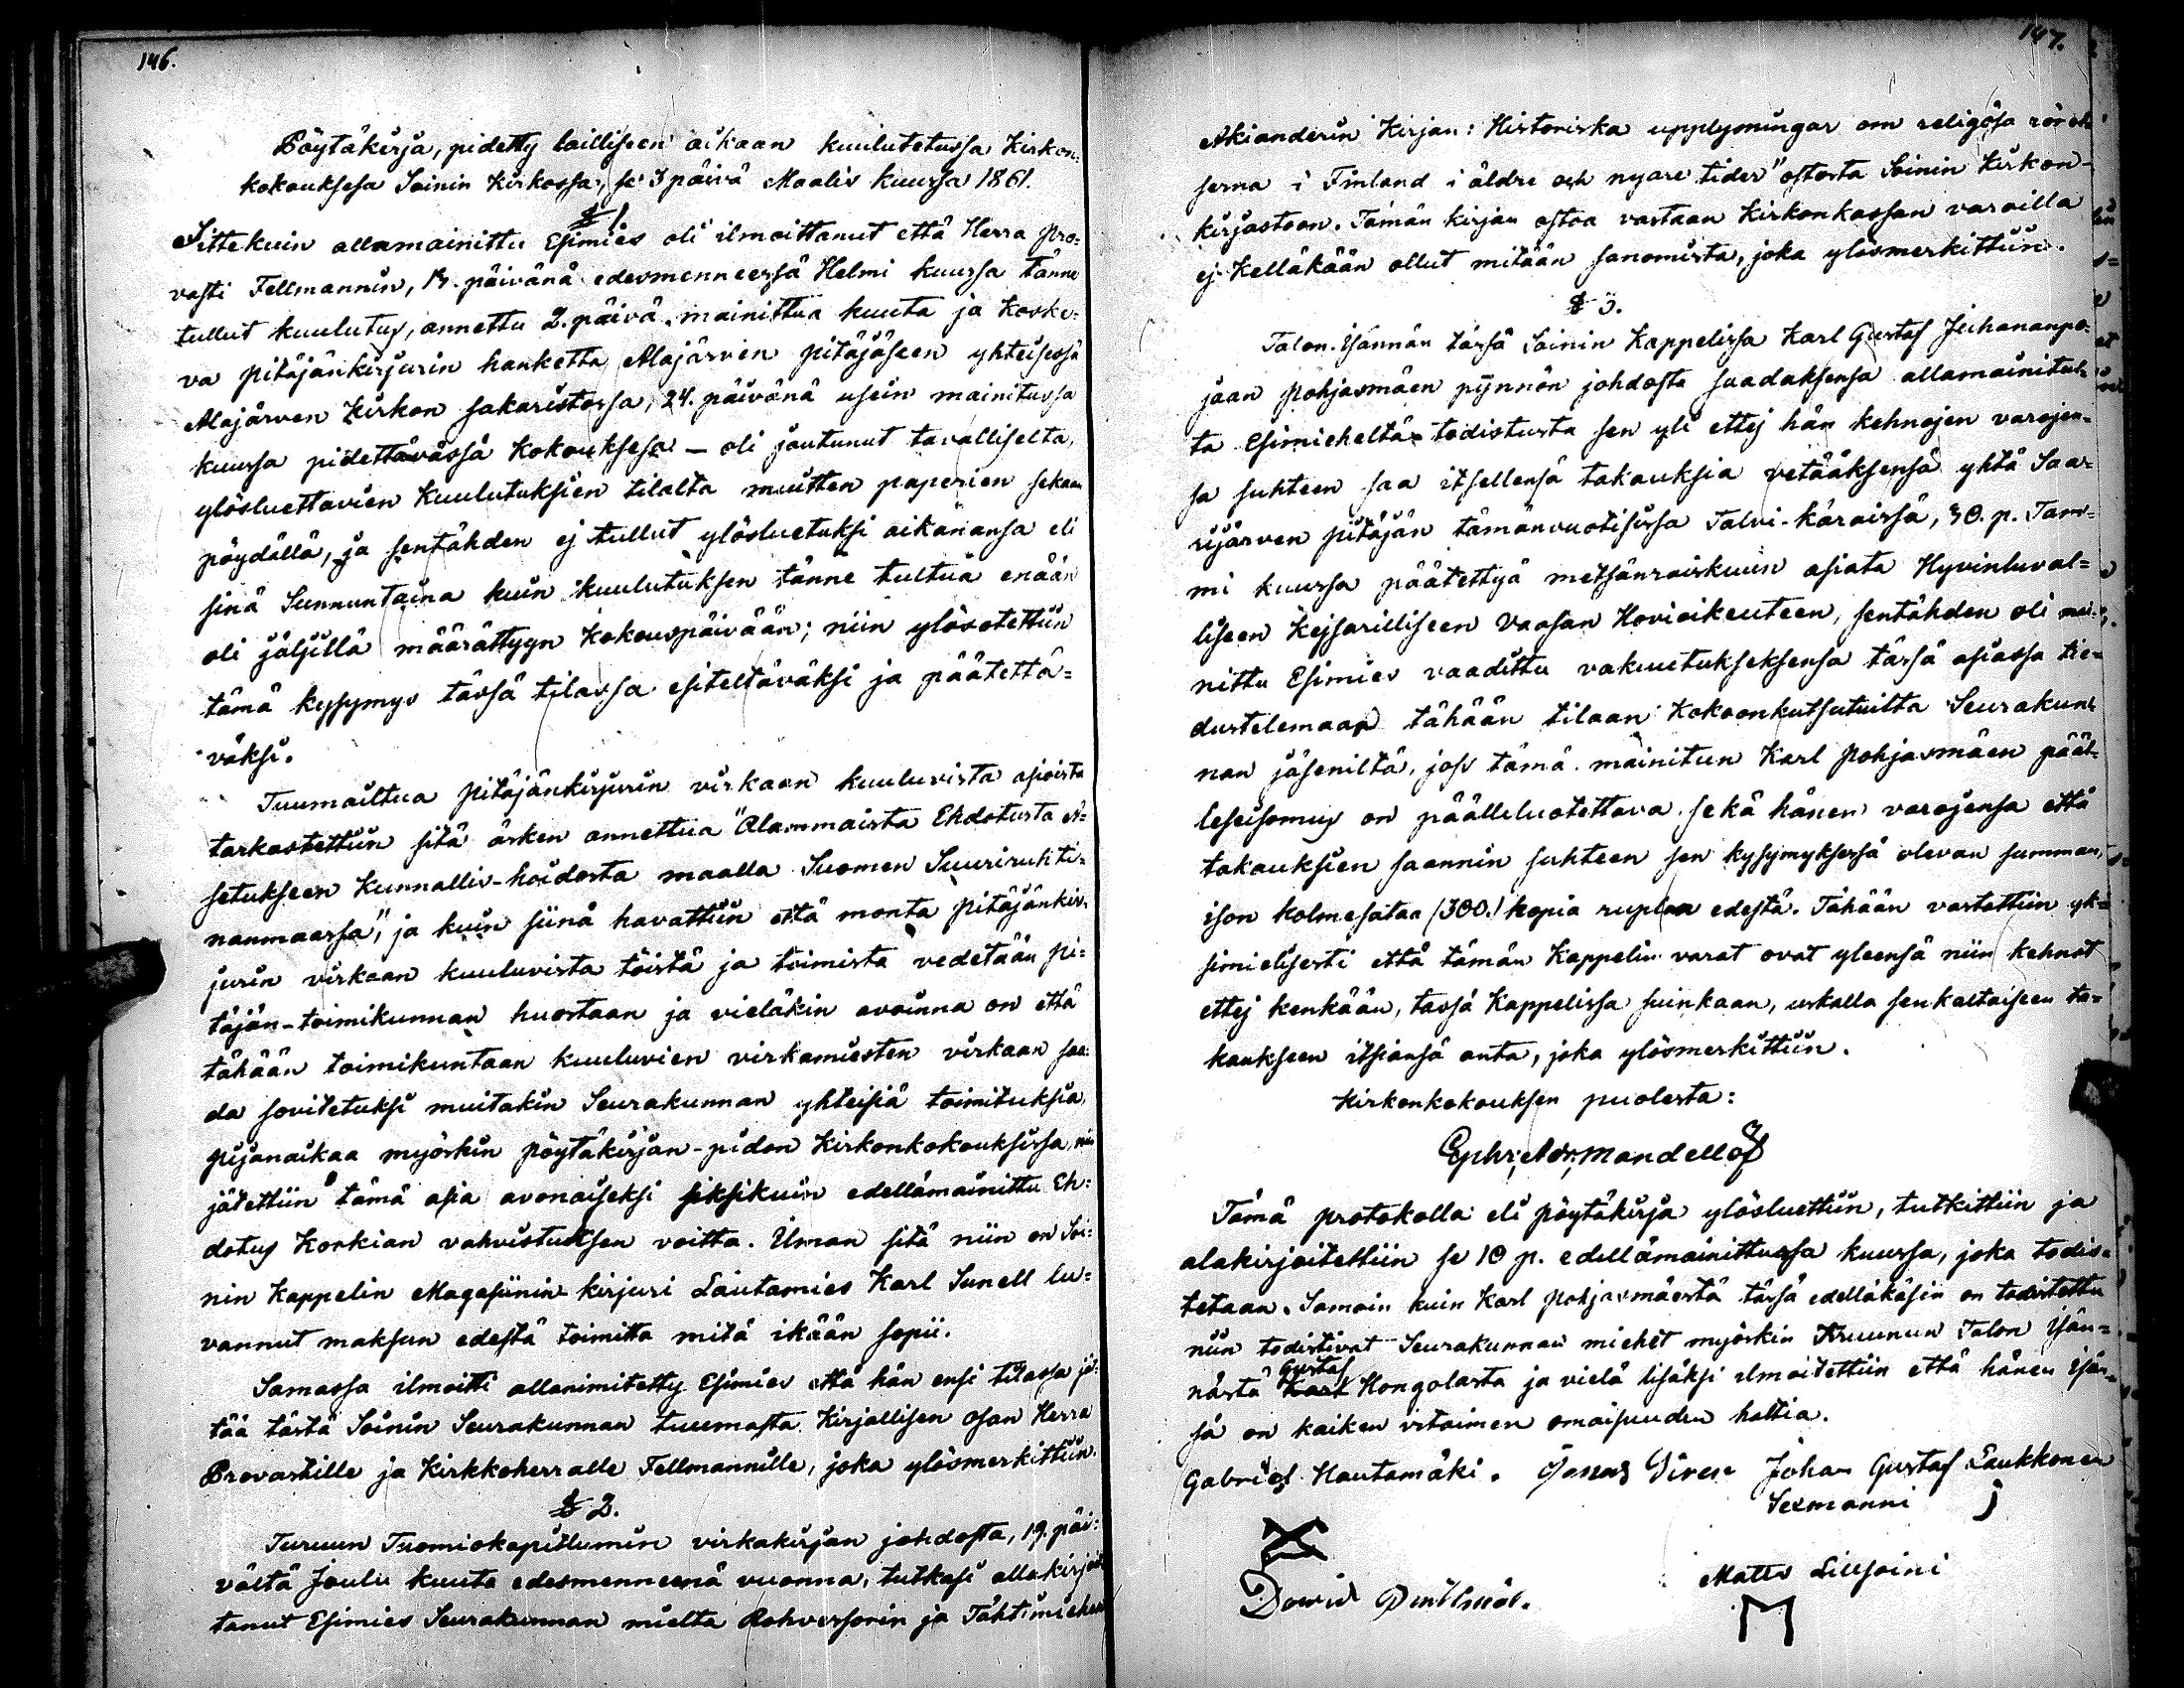 146.
Pöytäkirja, pidetty lailliseen aikaan kuulutetussa Kirkon:
kokouksesa Soinin Kirkossa, se 3 päivä Maalis kuussa 1861.
§ 1.
Sittekuin allamainittu Esimies oli ilmoittanut että Herra Pro:
vasti Fellmannin, päivänä edesmenneessä Helmi kuussa tänne
tullut kuulutus, annettu 2. päivä mainittua kuuta ja koske:
va pitäjänkirjurin hanketta Alajärvien pitäjäseen yhteisessä
Alajärven Kirkon sakaristossa, 24. päivänä usein mainitussa
kuussa pidettävässä Kokouksesa — oli joutunut tavalliselta,
ylösluettavien Kuulutuksien tilalta muitten paperien sekaan
pöydällä, ja sentähden ej tullut ylösluetuksi aikanansa eli
sinä Sunnuntaina kuin kuulutuksen tänne tultua enään
oli jäljillä määrättyyn kokouspäivään; niin ylösotettiin
tämä kysymys tässä tilassa esiteltäväksi ja päätettä=
väksi.
Tuumailtua pitäjänkirjurin virkaan kuuluvista asioista
tarkastettiin sitä äsken annettua "Alammaista Ehdotusta A=
setukseen Kunnallis-hoidosta maalla Suomen Suuriruhti=
nanmaassa", ja kuin siinä havattiin että monta pitäjänkir=
jurin virkaan kuuluvista töistä ja toimista vedetään pi=
täjän-toimikunnan huostaan ja vieläkin avoinna on että
tähään toimikuntaan kuuluvien virkamiesten virkaan saa:
da sovitetuksi muitakin Seurakunnan yhteisiä toimituksia,
pijanaikaa myöskin pöytäkirjan-pidon Kirkonkokouksissa, niin
jätettiin tämä asia avonaiseksi siksikuin edellämainittu Eh:
dotus Korkian vahvistuksen voitta. Ilman sitä niin on Soi:
nin Kappelin Magasiinin kirjuri Lautamies Karl Sunell lu=
vannut maksun edestä toimitta mitä ikään sopii.
Samassa ilmoitti allanimitetty Esimies että hän ensi tilassa jä:
tää tästä Soinin Seurakunnan tuumasta Kirjallisen osan Herra
Provastille ja Kirkkoherralle Fellmannille, joka ylösmerkittiin.
§ 2.
Turuun Tuomiokapitlumin virkakirjan johdosta, 19. päi:
vältä Joulu kuuta edesmenneenä vuonna, tutkasi allakirjoit
tanut Esimies Seurakunnan mielta Rohvessorin ja Tähtimiehen
147.
Akianderin Kirjan: Historiska upplysningar om religiösa rörel
serna i Finland i äldre och nyare tider" ostosta Soinin Kirkon-
kirjastoon. Tämän kirjan ostoa vastaan Kirkonkassan varoilla
ej kelläkään ollut mitään sanomista, joka ylösmerkittiin.
§ 3.
Talon Isännän tässä Soinin Kappelissa Karl Gustaf Juhananpo=
jaan Pohjasmäen pynnön johdosta saadaksensa allamainitul=
ta Esimieheltä todistusta sen yli ettej hän kehnojen varojen=
sa suhteen saa itsellensä takauksia vetääksensä yhtä Saa=
rijärven pitäjän tämänvuotisissa Talvi-käräissä, 30. p. Tam=
mi kuussa päätettyä metsänraiskuun asiata Hyvinluval=
liseen Kejsarilliseen Vaasan Hovioikeuteen, sentähden oli mai=
nittu Esimies vaadittu vakuutukseksensa tässä asiassa tie=
dustelemaan tähään tilaan Kokoonkutsutuilta Seurakun=
nan jäseniltä, jos tämä mainitun Karl Pohjasmäen pääl=
leseisomus on päälleluotettava sekä hänen varojensa että
takauksien saannin suhteen sen kysymyksessä olevan summan,
ison kolmesataa (300.) hopia ruplaa edestä. Tähään vastattiin yk=
simielisesti että tämän Kappelin varat ovat yleensä niin kehnot
ettej kenkään, tassä Kappelissa suinkaan, uskalla senkaltaiseen ta=
kaukseen itsiänsä anta, joka ylösmerkittiin.
Kirkonkokouksen puolesta:
Mandellöf
Tämä protokolla eli pöytäkirja ylösluettiin, tutkittiin ja
alakirjoitettiin se 10 p. edellämainittussa kuussa, joka todis=
tetaan. Samoin kuin Karl Pohjasmäestä tässä edelläkäsin on todistettu
niin todistivat Seurakunnan miehet myöskin Kruunun Talon Isän=
nästä Karl Gustaf Hongolasta ja vielä lisäksi ilmoitettiin että hänen Isän=
sä on kaiken irtoimen omaisuuden haltia.
Gabriel Hautamäki. Jonas Siren Johan Gustaf Laukkonen
Sexmanni
Dawid
Matts Lillsoini